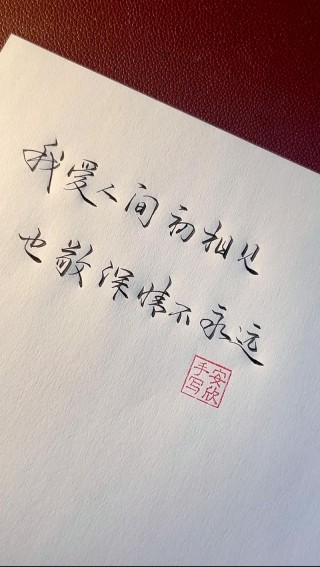 我爱人间初相见
也敬深情不永远
安欣手写